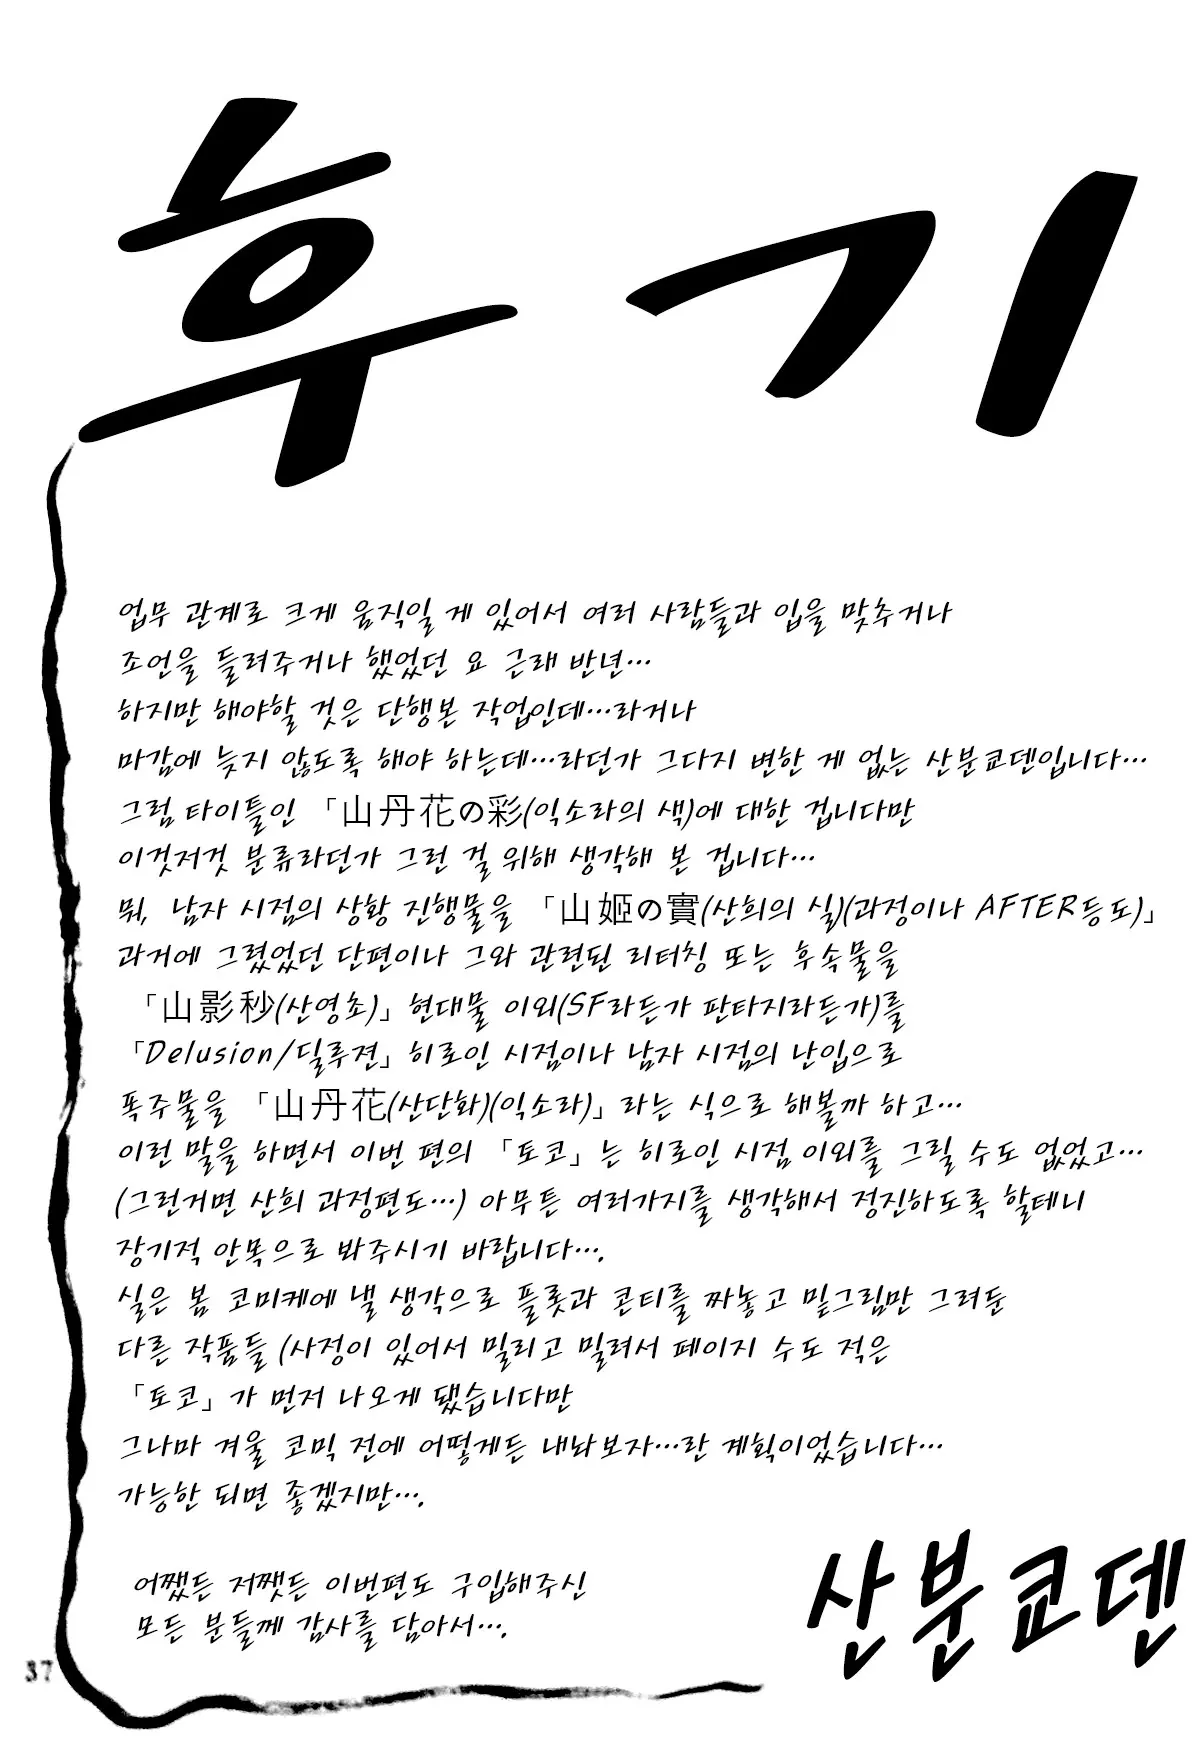 후기
업무 관계로 크게 움직일 게 있어서 여러 사람들과 입을 맞추거나
조언을 들려주거나 했었던 요 근래 반년…
하지만 해야할 것은 단행본 작업인데…라거나
마감에 늦지 않도록 해야 하는데…라던가 그다지 변한 게 없는 산분쿄덴입니다…
그럼 타이틀인 「山丹花の彩(익소라의 색)에 대한 겁니다만
이것저것 분류라던가 그런 걸 위해 생각해 본 겁니다…
뭐, 남자 시점의 상황 진행물을 「山姬の實(산희의 실)(과정이나 AFTER등도)」
과거에 그렸었던 단편이나 그와 관련된 리터칭 또는 후속물을
「山影秒(산영초)」현대물 이외(SF라든가 판타지라든가)를
「Delusion/딜루젼」히로인 시점이나 남자 시점의 난입으로
폭주물을 「山丹花(산단화)(익소라)」라는 식으로 해볼까 하고…
이런 말을 하면서 이번 편의 「토코」는 히로인 시점 이외를 그릴 수도 없었고…
(그런거면 산희 과정편도…) 아무튼 여러가지를 생각해서 정진하도록 할테니
장기적 안목으로 봐주시기 바랍니다….
실은 봄 코미케에 낼 생각으로 플롯과 콘티를 짜놓고 밑그림만 그려둔
다른 작품들 (사정이 있어서 밀리고 밀려서 페이지 수도 적은
「토코」가 먼저 나오게 됐습니다만
그나마 겨울 코믹 전에 어떻게든 내놔보자…란 계획이었습니다…
가능한 되면 좋겠지만….
어쨌든 저쨋든 이번편도 구입해주신
모든 분들께 감사를 담아서….
산분쿄덴
37